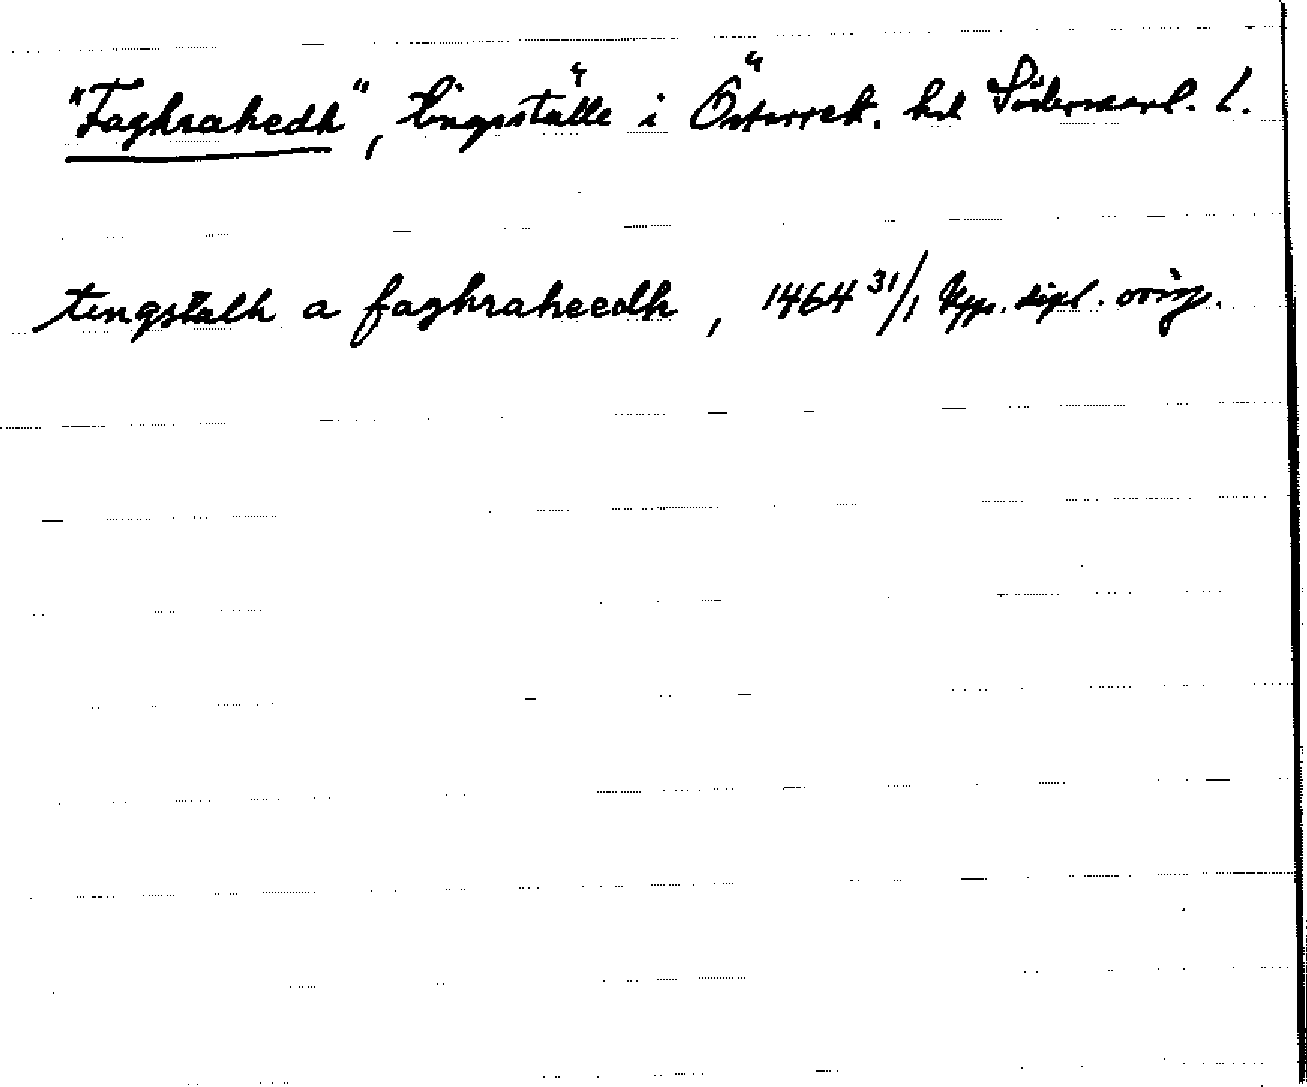 "Faghrahedh", tingsställe i Österrek. hd Södermanl. l.
tingstalh a faghraheedh, 1464 31/1 Kpps. dipl. orig.